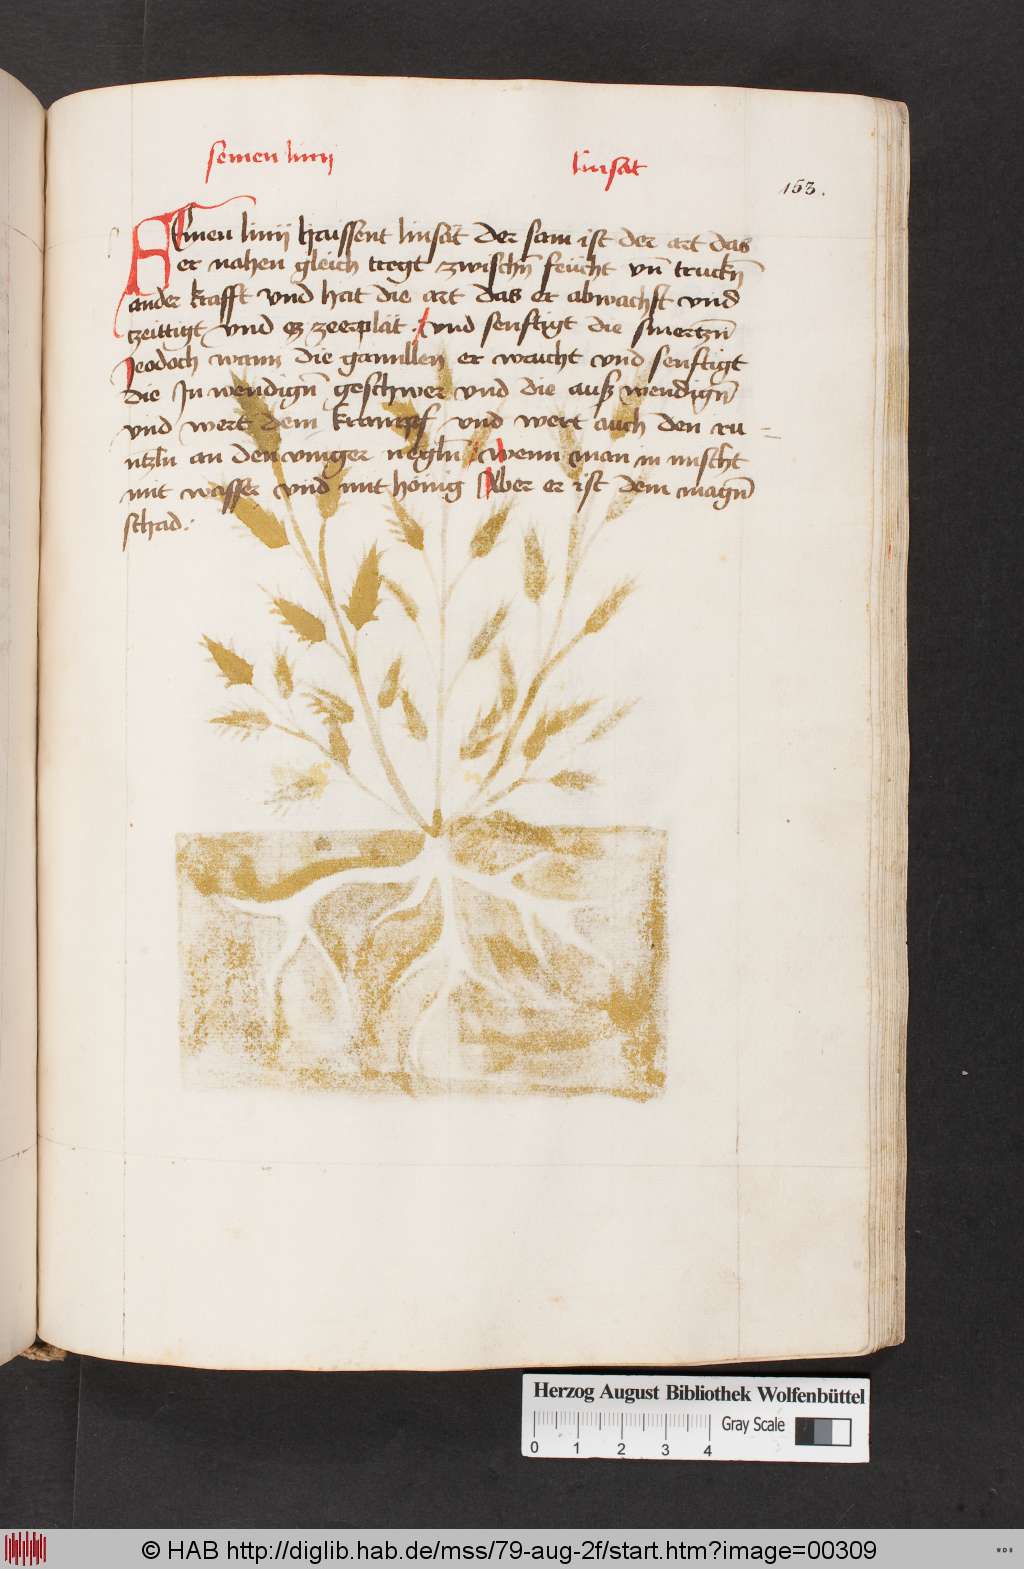 semen linij linsat
153.
Semen linij haissent linsat der sam ist der art das
er nahen gleich tregt zwischn̄ feücht vn̄ truckn̄
ander krafft vnd hat die art das er abwachst vnd
zeittigt vnd ez zeerplät. vnd senftigt die smertzn̄
Jeodoch wann die gamillen er waicht vnd senftigt
die Jn wendign̄ geschwer vnd die auß wendign̄
vnd wert dem krampf vnd wert auch den ru-
ntzln an den vinger negln̄ wenn man in mischt
mit wasser vnd mit hönig Aber er ist dem magn̄
schad.
Herzog August Bibliothek Wolfenbüttel
Gray Scale
0 1 2 3 4
© HAB http://diglib.hab.de/mss/79-aug-2f/start.htm?image=00309